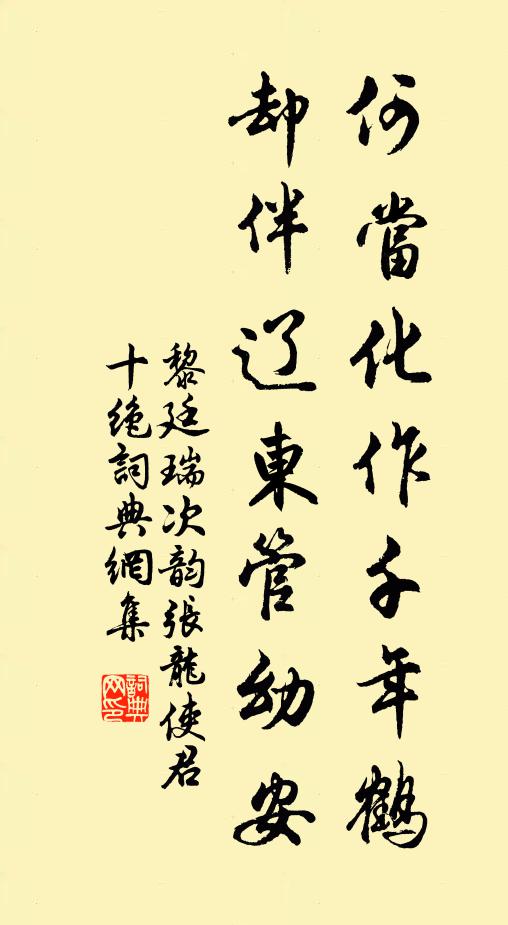 何當化作千年鶴
却伴辽東管幼安
黎廷瑞次韵張龍使君
十绝詞典網集
詞典网印